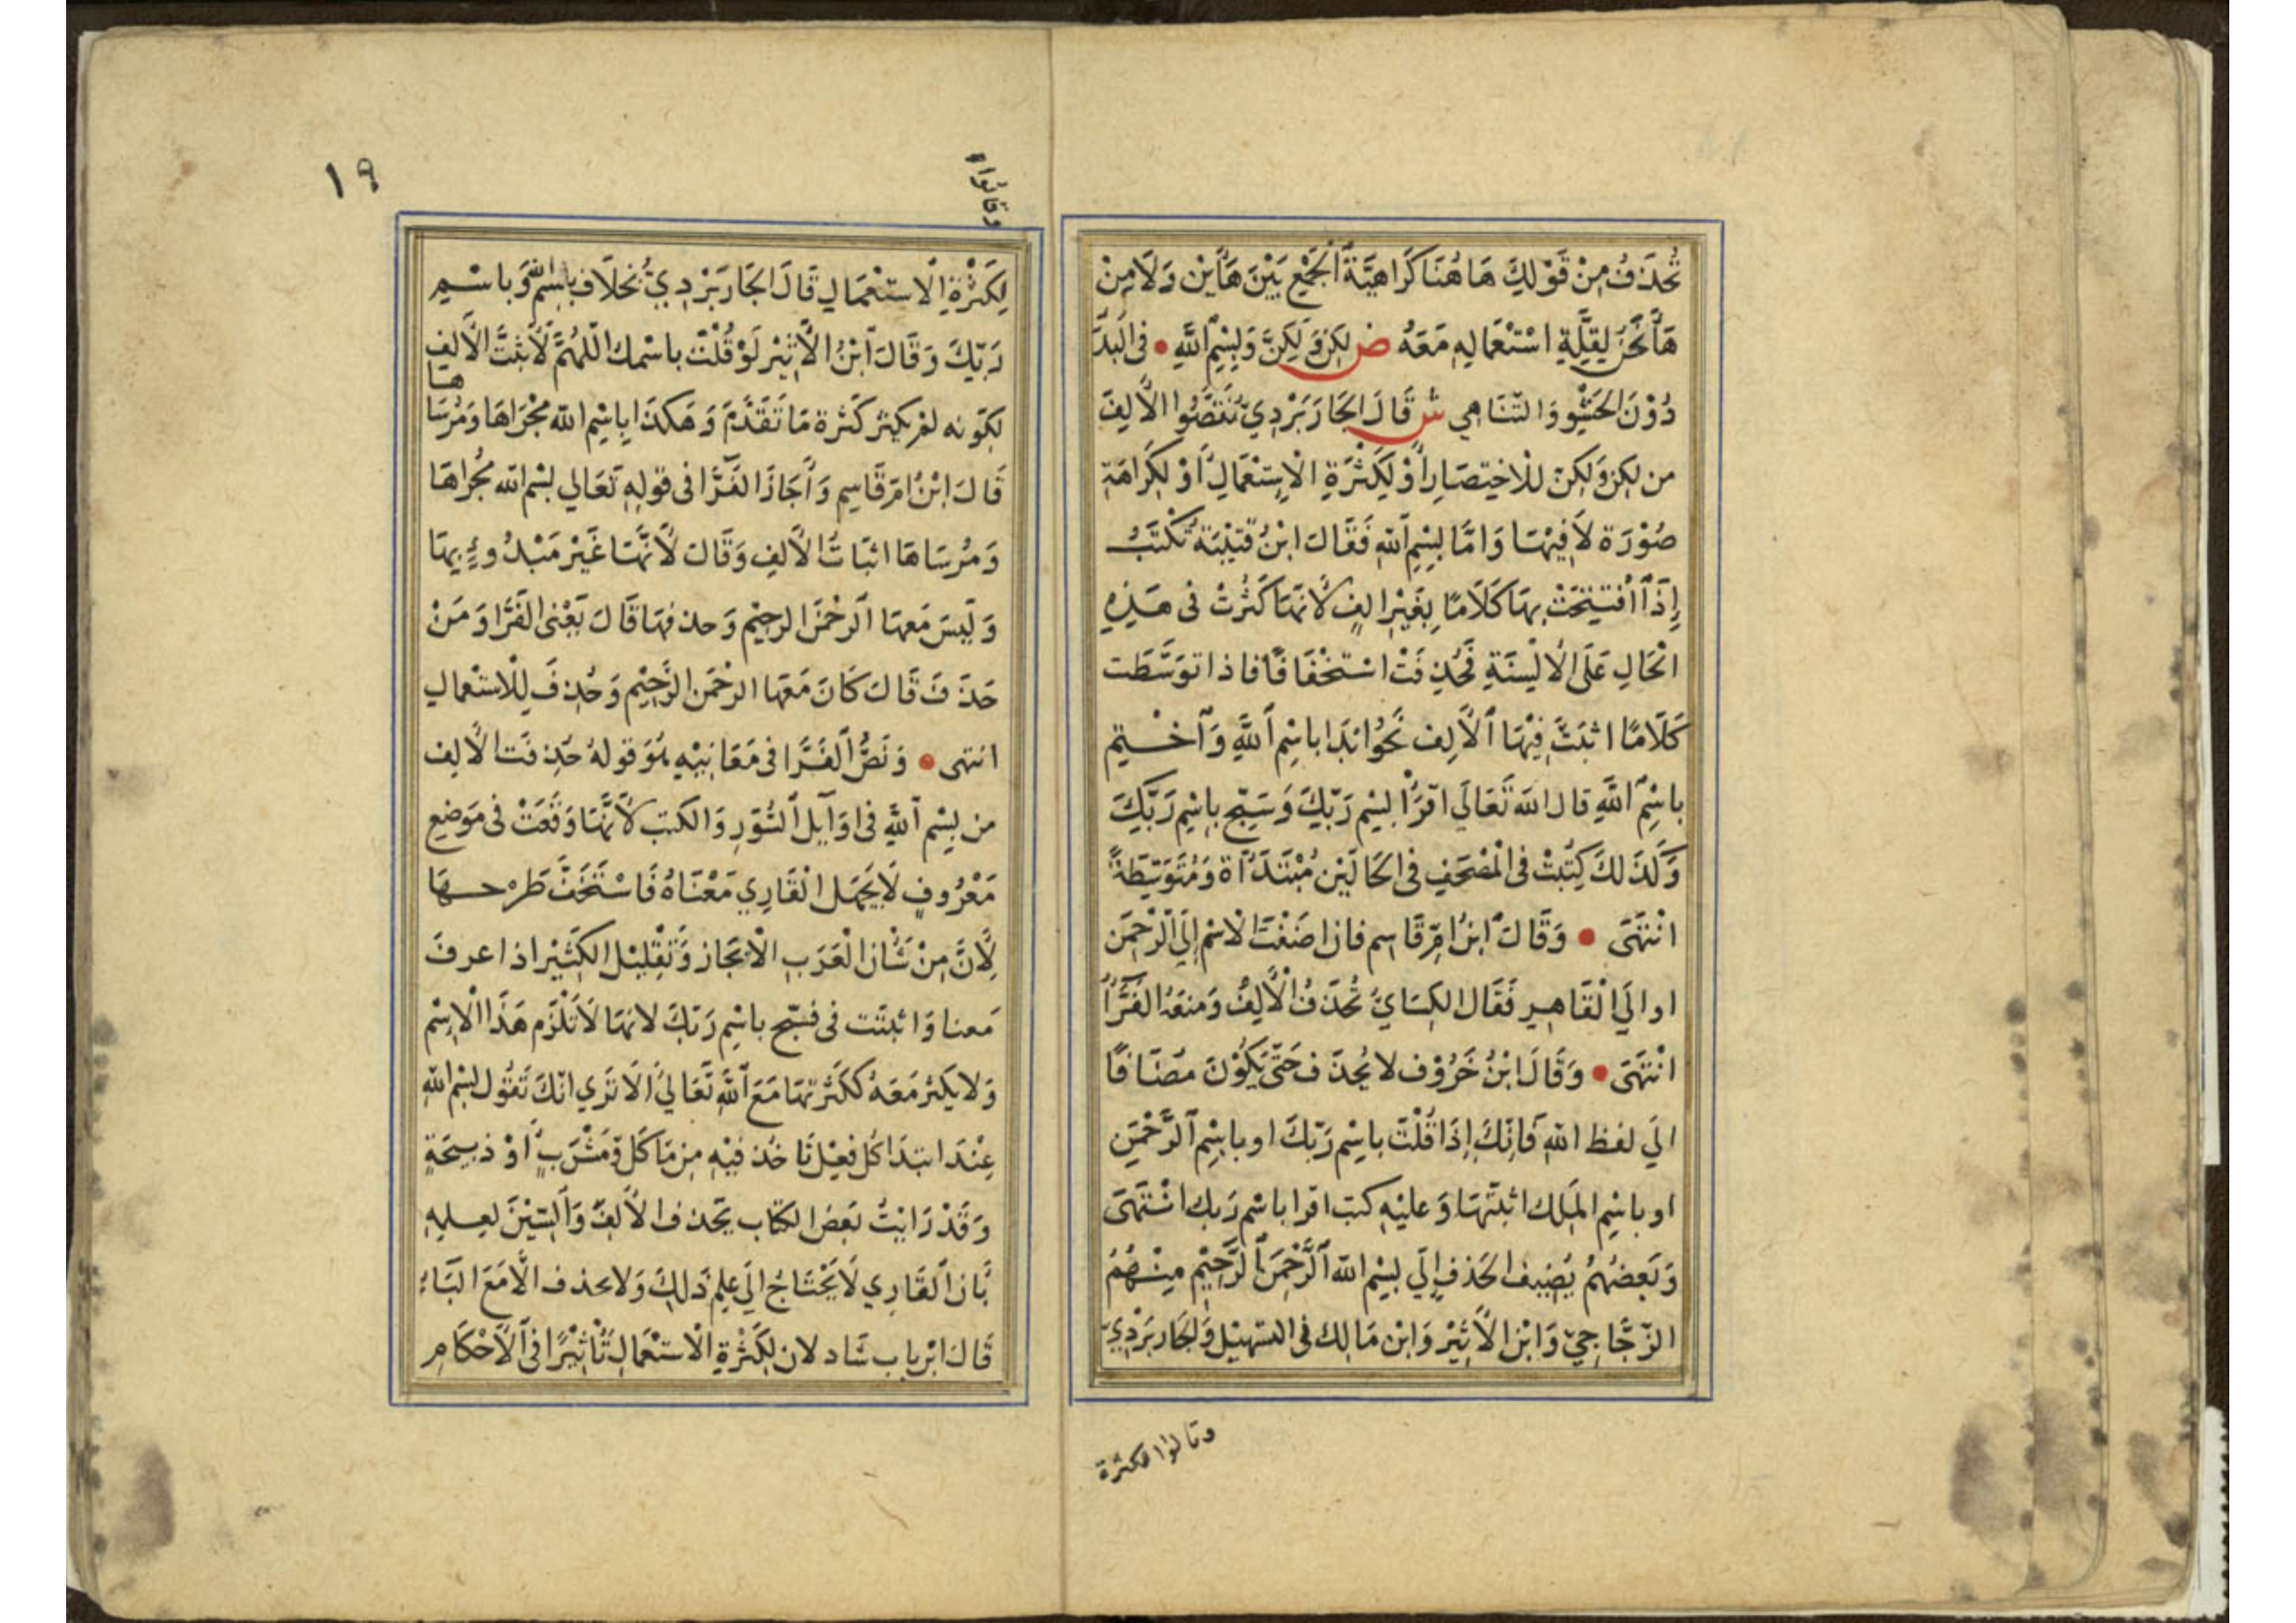 تُحْذَفُ مِنْ قَوْلِكَ هَاهُنَا كَرَاهِيَّةَ الْجَمْعِ بَيْنَ هَأَيْنِ وَلَا مِنْ
هَانَحْنُ لِقِلَّةِ اسْتِعْمَالِهِ مَعَهُ ص لكن وَلكِنَّ وَبِسْمِ اللَّهِ • فى البدَا
دُوْنَ الحَشْوِ وَالتَّنَاهِي ش قَالَ الجَارَبَرْدِيّ نَقَصُوا الْأَلِفَ
من لكن وَلكِنّ لِلْاخْتِصَارِ أَوْ لِكَثْرَةِ الْاِسْتِعْمَالِ أَوْ لِكَرَاهَةِ
صُوْرَة لَا فِيْهَا وَامَّا بِسْمِ اللهِ فَقَالَ ابْنُ قُتَيْبَةَ تُكْتَبُ
إِذَا افْتَتَحْتَ بِهَا كَلَامًا بِغَيْرِ الِفٍ لأَنَّهَا كَثُرَتْ فى هَذِهِ
الْحَالِ عَلَى الْأَلْسِنَةِ فَحُذِفَتْ اسْتِخْفَافًا فاذا توَسَّطَت
كَلَامًا اثبَتَّ فِيْهَا الْأَلِفَ نَحْوُ ابْدَا بِاسْمِ اللَّهِ وَآخْتِم
بِاسْمِ اللَّهِ قال الله تَعَالَى اقْرَأْ بِسْمِ رَبِّكَ وَسَبِّحْ بِاسْمِ رَبِّكَ
وَكَذَلكَ كُتِبَتْ فى الْمُصْحَفِ فى الحَالَيْنِ مُبْتَدَأَة وَمُتَوَسِّطَةً
انْتَهَى • وَقَالَ ابْنُ امِّ قَاسِم فان اضَفْتَ الْاسْمَ إِلَى الرَّحْمَنِ
او الَي الْقَاهِرِ فَقَالَ الكِسَايُّ تُحْذَفُ الْأَلِفُ وَمَنَعَهُ الْفَرَّاُ
انْتَهَى • وَقَالَ ابْنُ خَرُوْف لا يُحذَف حَتّى يَكُوْنَ مُضَافًا
الَي لفظ اللهِ فَانَّكَ إِذَا قُلْتَ بِاسْمِ رَبِّكَ او باسْمِ الرَّحْمَنِ
او باسْمِ المَلِك اثبَتّهَا وَعليْهِ كتب اقرا باسْم رَبك انْتَهَى
وَبَعضُهُمْ يُضِيف الحَذفَ إِلَي بِسْم الله الرَّحْمَنِ الرَّحِيْمِ مِنْهُمُ
الزّجّاجِيّ وَابْن الْأَثِيْر وَابْن مَالك فى التسْهِيْل وَالجَاربَرْدِيّ
وقالوا لكثرة
١٩
وقالوا
لِكَثْرَةِ الْاسْتِعْمَالِ قَالَ الجَارَبَرْدِيّ بخلَاف بِاسْمِ اللّه وَبِاسْمِ
رَبّكَ وَقَالَ ابْنُ الْأَثِيْر لَوْ قُلْتَ باسْمك اللّهُمَّ لَأَثبَتَّ الْأَلِفَ
لِكَوْنه لمْ يَكثر كَثرة مَا تَقَدَّمَ وَهَكذَا بِاسْمِ الله مَجْرَاهَا وَمُرْسَاها
قَالَ ابْنُ امّ قَاسِم وَأَجَازَ الفَرَّا فى قولِهِ تَعَالي بسْم الله مُجْرَاهَا
وَمُرْسَاهَا اثبَاتَ الْأَلِفِ وَقَالَ لأَنَّهَا غَيْر مَبْدُوءٍ بِهَا
وَلَيسَ مَعهَا الرَّحْمَنِ الرحِيْم وَحذفهَا قَالَ يَعْنى الفَرَّا وَمَنْ
حَذَفَ قَالَ كَانَ مَعَهَا الرحْمَنِ الرَّحِيْم وَحُذِفَ لِلْاسْتعْمالِ
انتهى • وَنَصُّ الفَرَّا فى مَعَانِيْهِ هُوَ قولهُ حُذِفَت الْألِف
من بِسْمِ اللَّهِ فى اوَايلِ السُّوَرِ وَالكتبِ لأَنَّهَا وَقَعَتْ فى مَوضِع
مَعْرُوفٍ لَا يَجْهَلُ الْقَارِي مَعْنَاهُ فَاسْتُخِفَّ طَرْحهَا
لِأَنَّ مِنْ شَأْنِ الْعَرَبِ الْايجَاز وَتَقْلِيْلَ الكَثِيْر اذا عرفَ
مَعنا وَاثبتَت فى فسَبّح باسْمِ رَبّكَ لانهَا لَا تَلْزَم هَذَا الْاِسْمَ
وَلا يَكثر مَعَهُ كَكَثْرتِهَا مَعَ اللَّهِ تَعَاليَ الَا تَرَي انّكَ تَقُول بِسْم اللهِ
عِنْدَ ابتدَا كُلّ فِعْل تَاخُذ فيْهِ من مَاكَل وَمَشْرَبٍ أَوْ ذَبِيحَةٍ
وَقَدْ رَايْتُ بَعْضَ الكتّاب يَحذف الْأَلفَ وَالسّيْنَ لعِلمِهِ
بَانّ الْقَارِي لَا يَحْتَاجُ الَي عِلمِ ذَلِكَ وَلا يحذف الّا مَعَ البَاءِ
قَالَ ابْن باب شَاد لان لِكَثْرَةِ الْاسْتِعْمَالِ تَأْثِيْرًا فى الْأَحْكَام